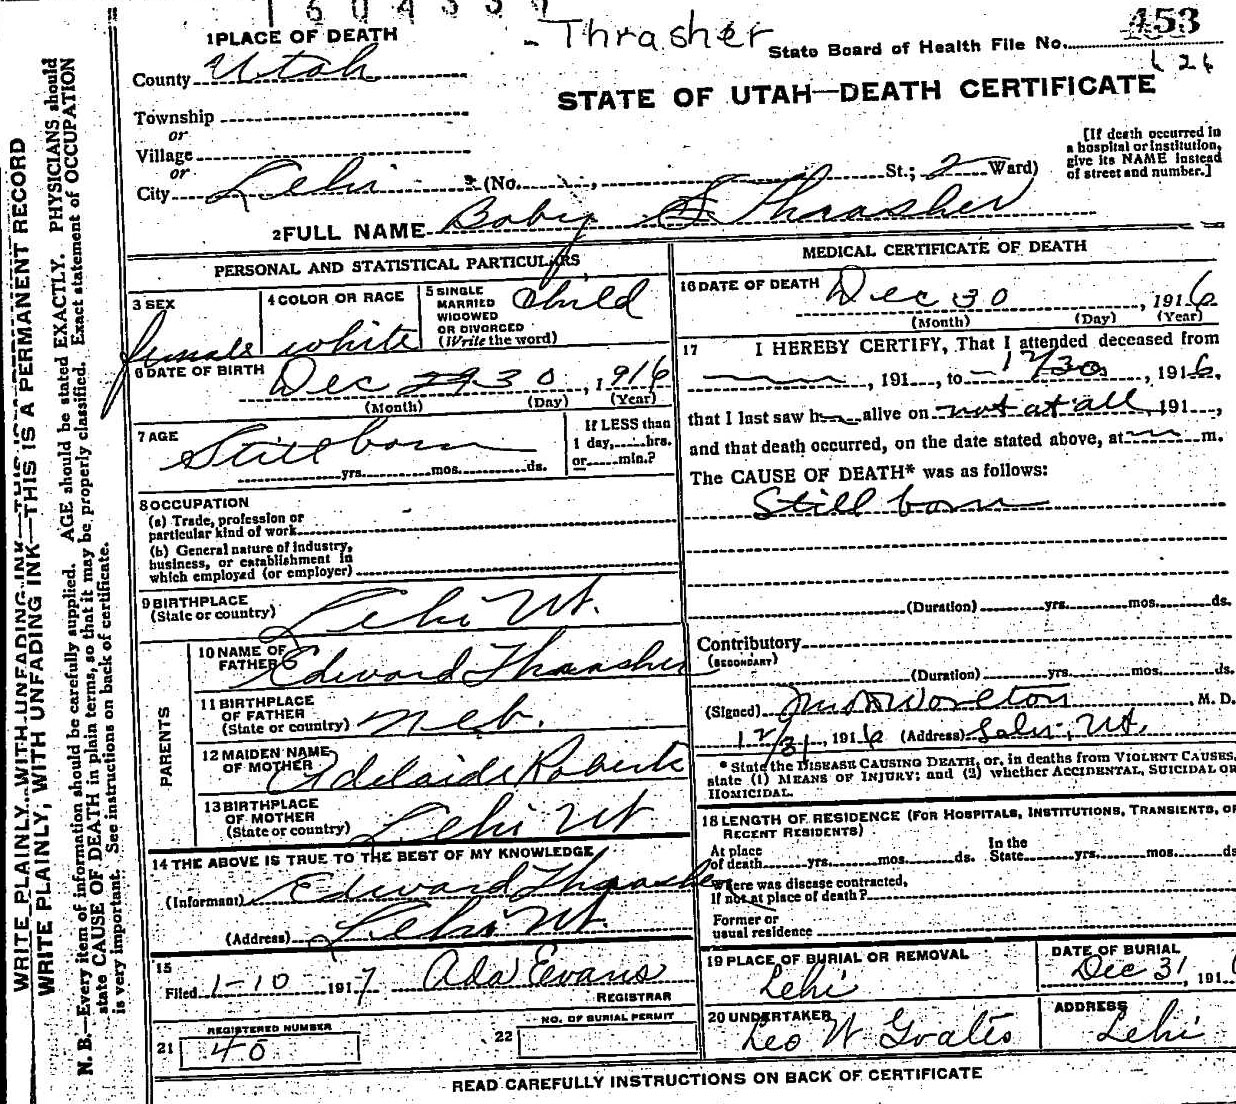 - Thrasher
453
1 PLACE OF DEATH
State Board of Health File No.
County Utah
STATE OF UTAH—DEATH CERTIFICATE
Township
or
Village
or
City Lehi (No. , St.; 2 Ward)
[If death occurred in
a hospital or institution,
give its NAME instead
of street and number.]
2 FULL NAME Baby Thrasher
PERSONAL AND STATISTICAL PARTICULARS
3 SEX
female
4 COLOR OR RACE
white
5 SINGLE
MARRIED
WIDOWED
OR DIVORCED
(Write the word)
Child
6 DATE OF BIRTH Dec 30, 1916
(Month) (Day) (Year)
7 AGE Still born
yrs. mos. ds.
If LESS than
1 day, hrs.
or min.?
8 OCCUPATION
(a) Trade, profession or
particular kind of work
(b) General nature of industry,
business, or establishment in
which employed (or employer)
9 BIRTHPLACE
(State or country) Lehi Ut.
PARENTS
10 NAME OF
FATHER Edward Thrasher
11 BIRTHPLACE
OF FATHER
(State or country) Neb.
12 MAIDEN NAME
OF MOTHER Adelaide Roberts
13 BIRTHPLACE
OF MOTHER
(State or country) Lehi Ut
14 THE ABOVE IS TRUE TO THE BEST OF MY KNOWLEDGE
(Informant) Edward Thrasher
(Address) Lehi Ut.
15
Filed 1-10 1917 Ada Evans
REGISTRAR
21 REGISTERED NUMBER
40
22 NO. OF BURIAL PERMIT
MEDICAL CERTIFICATE OF DEATH
16 DATE OF DEATH Dec 30, 1916
(Month) (Day) (Year)
17 I HEREBY CERTIFY, That I attended deceased from
, 191 , to 12/30, 1916.
that I last saw h alive on not at all 191 ,
and that death occurred, on the date stated above, at m.
The CAUSE OF DEATH* was as follows:
Still born
(Duration) yrs. mos. ds.
Contributory
(SECONDARY)
(Duration) yrs. mos. ds.
(Signed) , M. D.
12/31, 1916 (Address) Lehi, Ut.
* State the DISEASE CAUSING DEATH, or, in deaths from VIOLENT CAUSES,
state (1) MEANS OF INJURY; and (2) whether ACCIDENTAL, SUICIDAL OR
HOMICIDAL.
18 LENGTH OF RESIDENCE (FOR HOSPITALS, INSTITUTIONS, TRANSIENTS, OR
RECENT RESIDENTS)
At place
of death yrs. mos. ds.
In the
State yrs. mos. ds
Where was disease contracted,
If not at place of death?
Former or
usual residence
19 PLACE OF BURIAL OR REMOVAL
Lehi
DATE OF BURIAL
Dec 31, 191
20 UNDERTAKER
Leo W Goates
ADDRESS
Lehi
READ CAREFULLY INSTRUCTIONS ON BACK OF CERTIFICATE
WRITE PLAINLY, WITH UNFADING INK—THIS IS A PERMANENT RECORD
N. B.—Every item of information should be carefully supplied. AGE should be stated EXACTLY. PHYSICIANS should
state CAUSE OF DEATH in plain terms, so that it may be properly classified. Exact statement of OCCUPATION
is very important. See instructions on back of certificate.